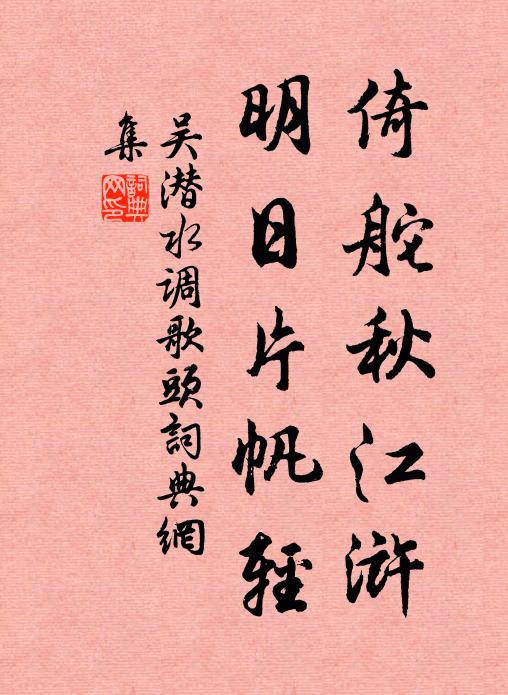 倚舵秋江浒
明日片帆轻
吴潜水调歌头词典網
集
詞典
网印